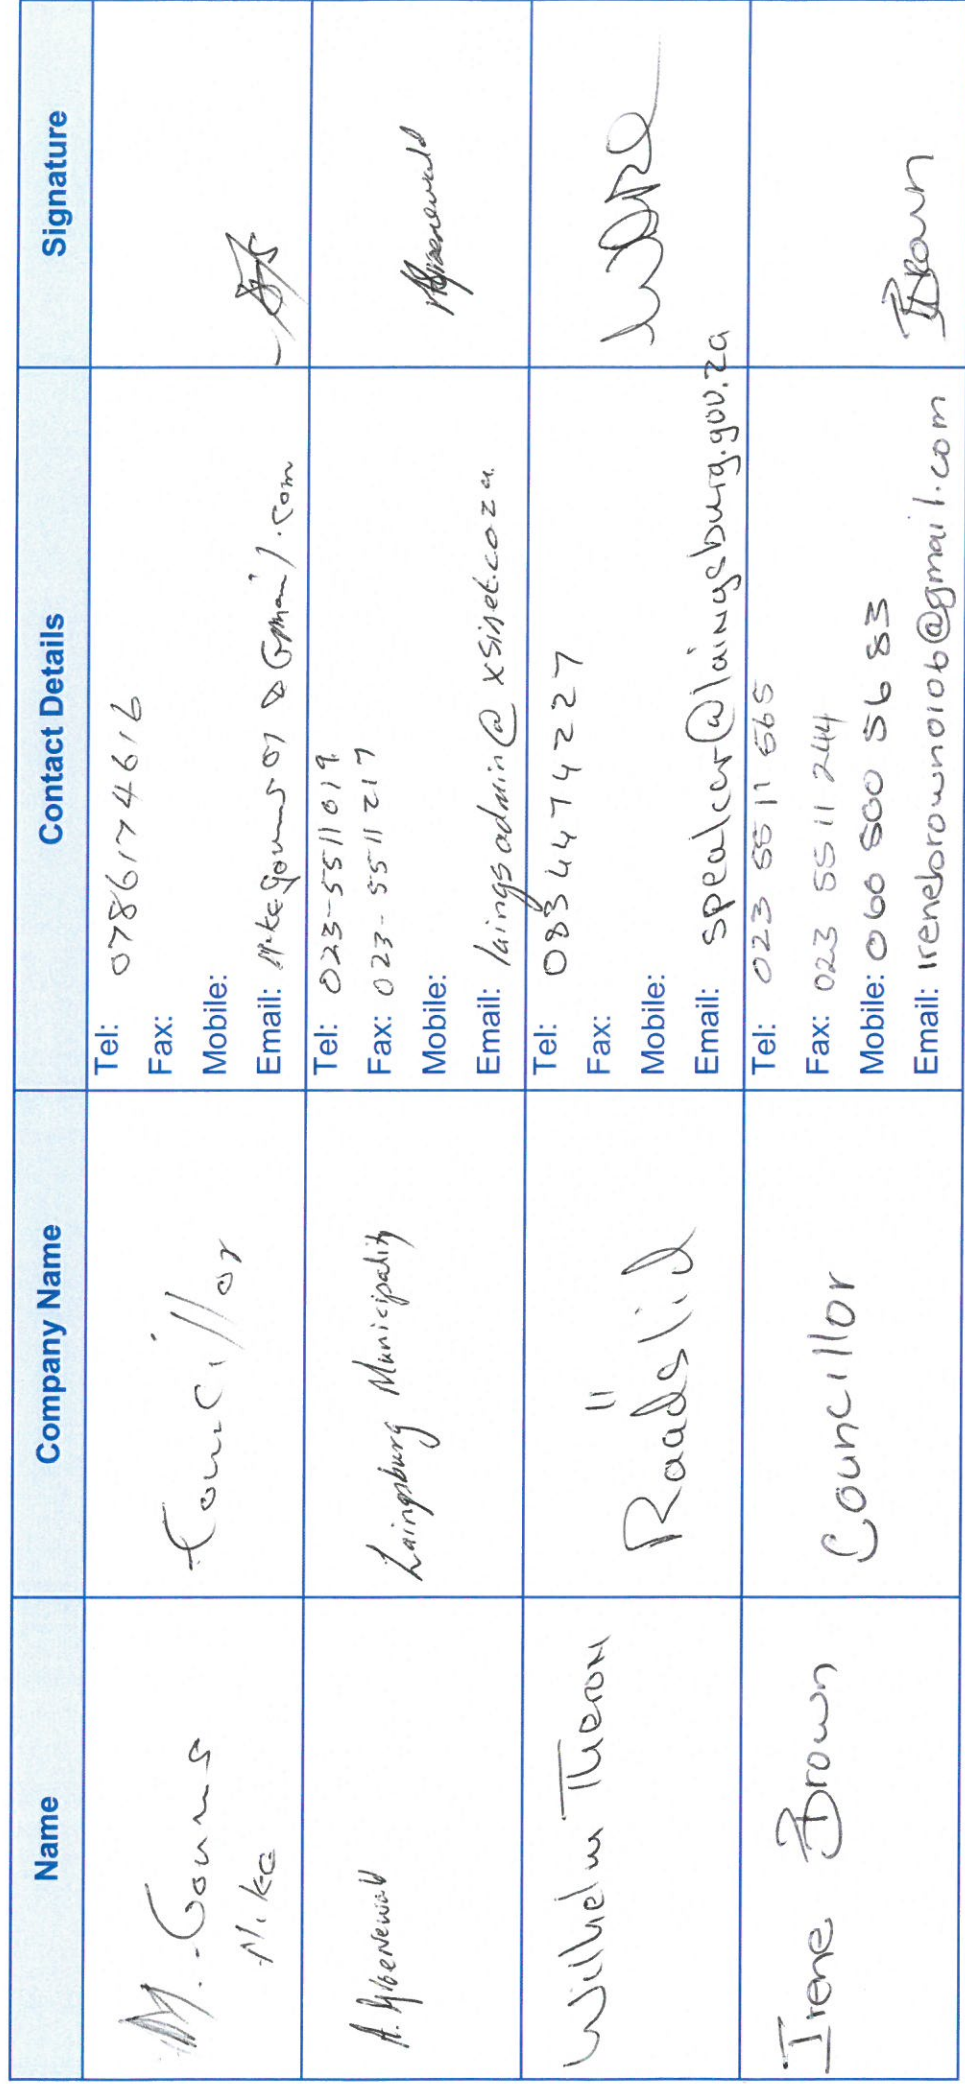 Name Company Name Contact Details Signature
M. Gouws
Mike
Councillor
Tel: 0786174616
Fax:
Mobile:
Email: @Gmail.com
Laingsburg Municipality
Tel: 023-5511019
Fax: 023-5511217
Mobile:
Email: laingsadmin@xsinet.coza
Wilhelm Theron
Raadslid
Tel: 0834474227
Fax:
Mobile:
Email: speaker@laingsburg.gov.za
Irene Brown
Councillor
Tel: 023 5511 565
Fax: 023 5511 244
Mobile: 060 500 56 83
Email: irenebrown0106@gmail.com
IBrown